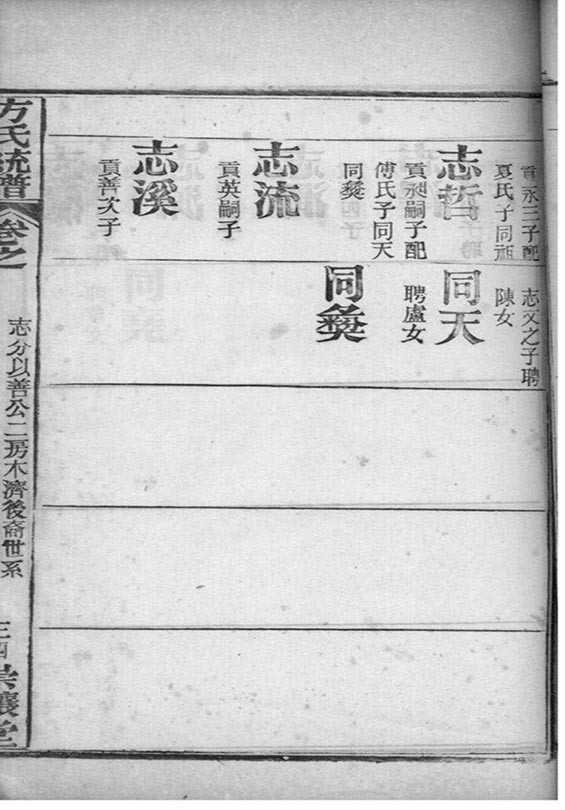 貢永三子配
夏氏子同瓶
志哲
貢昶嗣子配
傅氏子同天
同彜
志流
貢英嗣子
志溪
貢善次子
志文之子聘
陳女
同天
聘盧女
同彜
方氏統譜
卷之
志分以善公二房木濟後裔世系